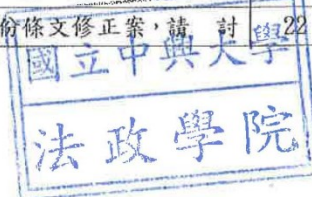 份條文修正案,請 討 22
國立中興大學
法政學院